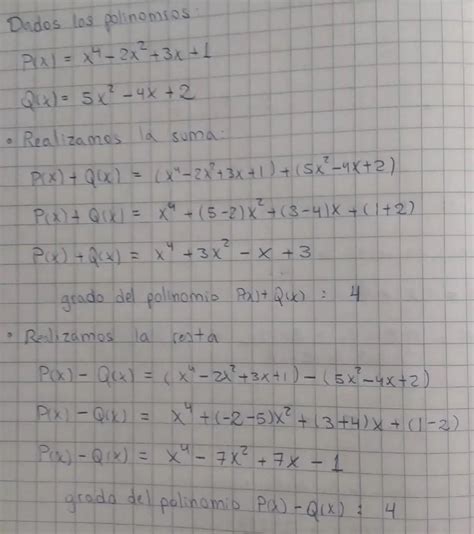 Dados los polinomios:
P(x) = x⁴ - 2x² + 3x + 1
Q(x) = 5x² - 4x + 2
• Realizamos la suma:
P(x) + Q(x) = (x⁴ - 2x² + 3x + 1) + (5x² - 4x + 2)
P(x) + Q(x) = x⁴ + (5-2)x² + (3-4)x + (1+2)
P(x) + Q(x) = x⁴ + 3x² - x + 3
grado del polinomio P(x) + Q(x) : 4
• Realizamos la resta
P(x) - Q(x) = (x⁴ - 2x² + 3x + 1) - (5x² - 4x + 2)
P(x) - Q(x) = x⁴ + (-2-5)x² + (3+4)x + (1-2)
P(x) - Q(x) = x⁴ - 7x² + 7x - 1
grado del polinomio P(x) - Q(x) : 4